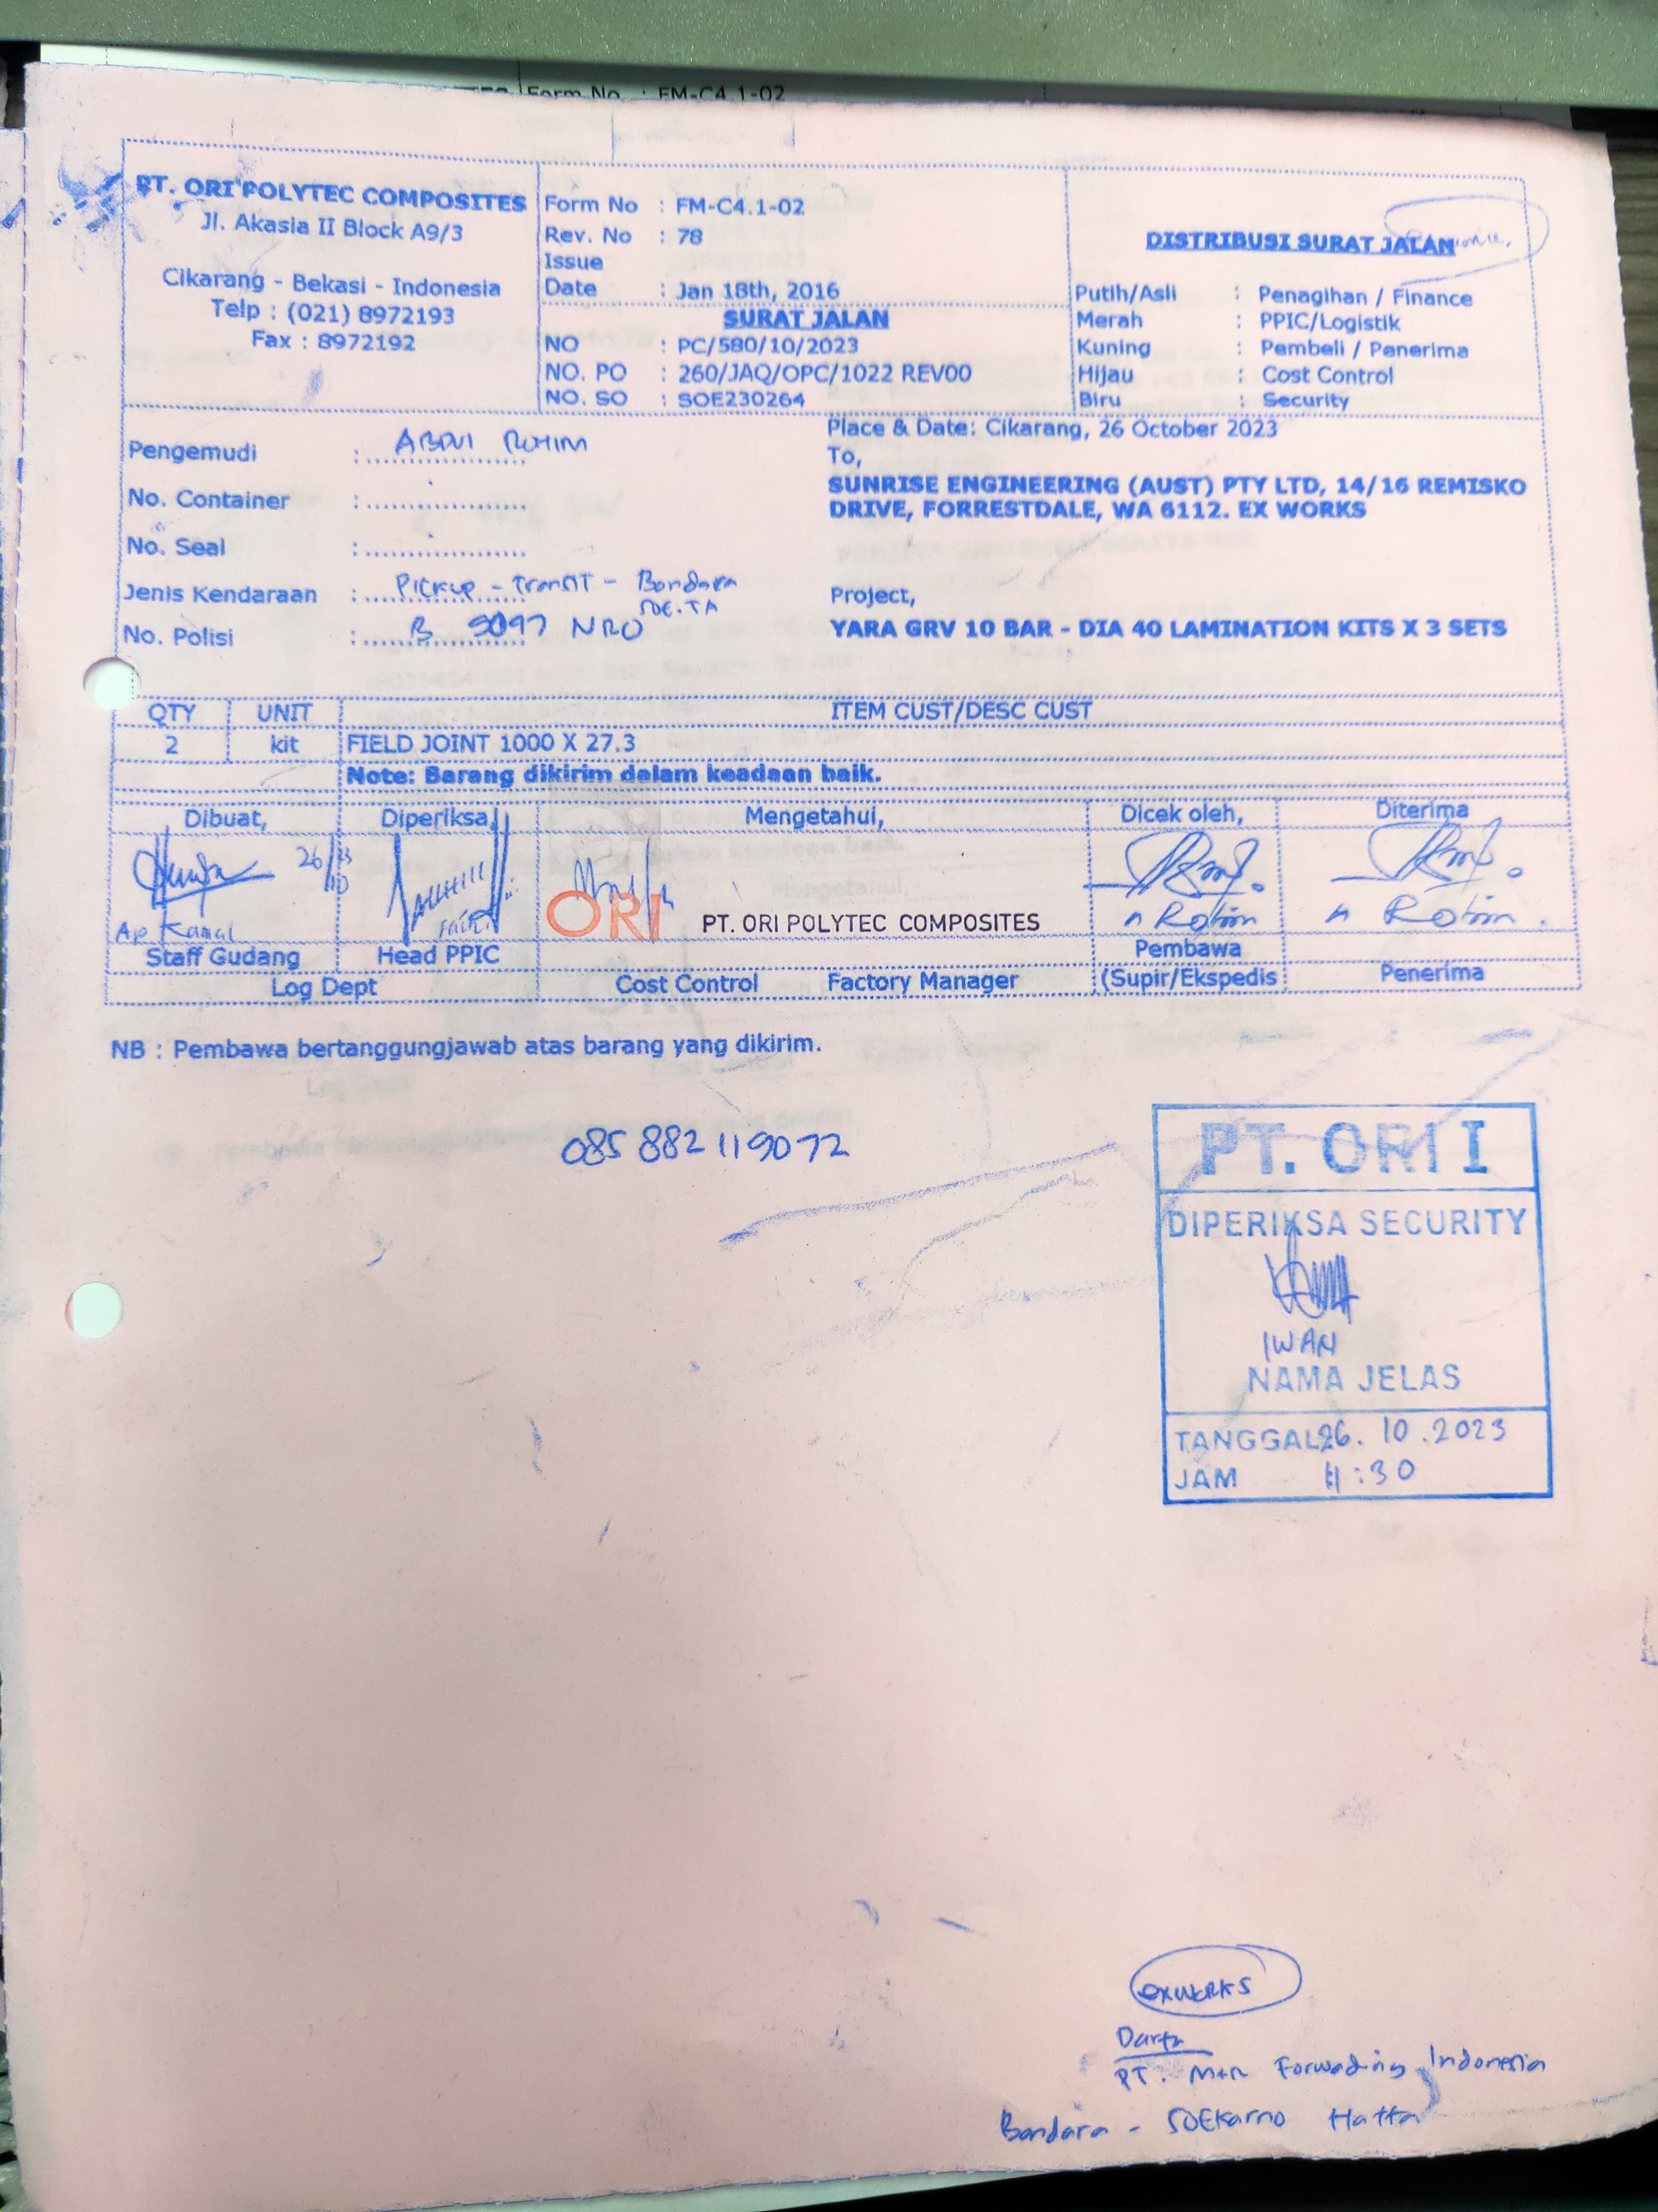 Form No : FM-C4.1-02
PT. ORI POLYTEC COMPOSITES
Jl. Akasia II Block A9/3
Cikarang - Bekasi - Indonesia
Telp : (021) 8972193
Fax : 8972192
Form No : FM-C4.1-02
Rev. No : 78
Issue
Date : Jan 18th, 2016
SURAT JALAN
NO : PC/580/10/2023
NO. PO : 260/JAQ/OPC/1022 REV00
NO. SO : SOE230264
DISTRIBUSI SURAT JALAN
Putih/Asli : Penagihan / Finance
Merah : PPIC/Logistik
Kuning : Pembeli / Penerima
Hijau : Cost Control
Biru : Security
Pengemudi : ABDUL ROHIM
No. Container :
No. Seal :
Jenis Kendaraan : Pickup - Transit - Bandara
SOE.TA
No. Polisi : B 9097 NRO
Place & Date: Cikarang, 26 October 2023
To,
SUNRISE ENGINEERING (AUST) PTY LTD, 14/16 REMISKO
DRIVE, FORRESTDALE, WA 6112. EX WORKS
Project,
YARA GRV 10 BAR - DIA 40 LAMINATION KITS X 3 SETS
QTY UNIT ITEM CUST/DESC CUST
2 kit FIELD JOINT 1000 X 27.3
Note: Barang dikirim dalam keadaan baik.
Dibuat, Diperiksa, Mengetahui, Dicek oleh, Diterima
26/10
Ap Kamal
ORI PT. ORI POLYTEC COMPOSITES
Rohim
Rohim
Staff Gudang Head PPIC Pembawa
Log Dept Cost Control Factory Manager (Supir/Ekspedis Penerima
NB : Pembawa bertanggungjawab atas barang yang dikirim.
085 882 119072
PT. ORI I
DIPERIKSA SECURITY
IWAN
NAMA JELAS
TANGGAL 26. 10. 2023
JAM 11:30
EXWORKS
PT. M+R Forwading Indonesia
Bandara - SOEKarno Hatta